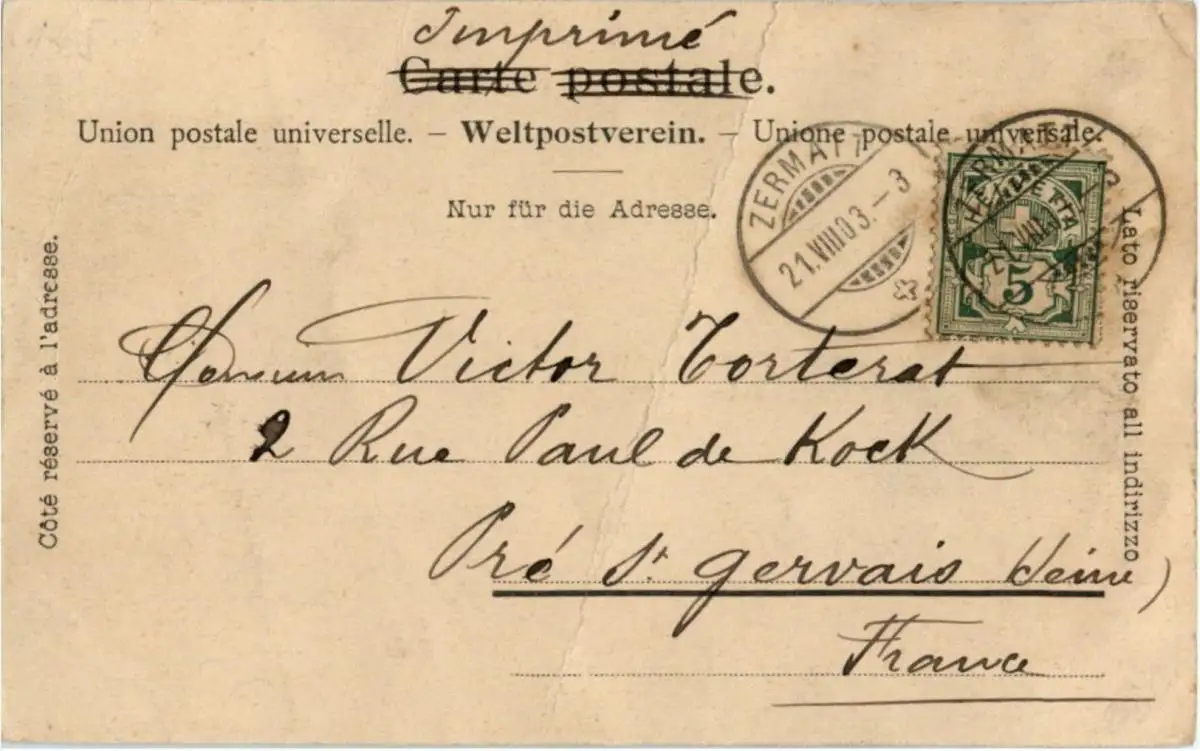 Imprimé
Carte postale.
Union postale universelle. – Weltpostverein. – Unione postale universale.
Nur für die Adresse.
Côté réservé à l'adresse.
Lato riservato all indirizzo
ZERMATT
21.VIII.03.–3
ZERMATT
21.VIII
HELVETIA
5
Monsieur Victor Torterat
2 Rue Paul de Kock
Pré St gervais Seine)
France